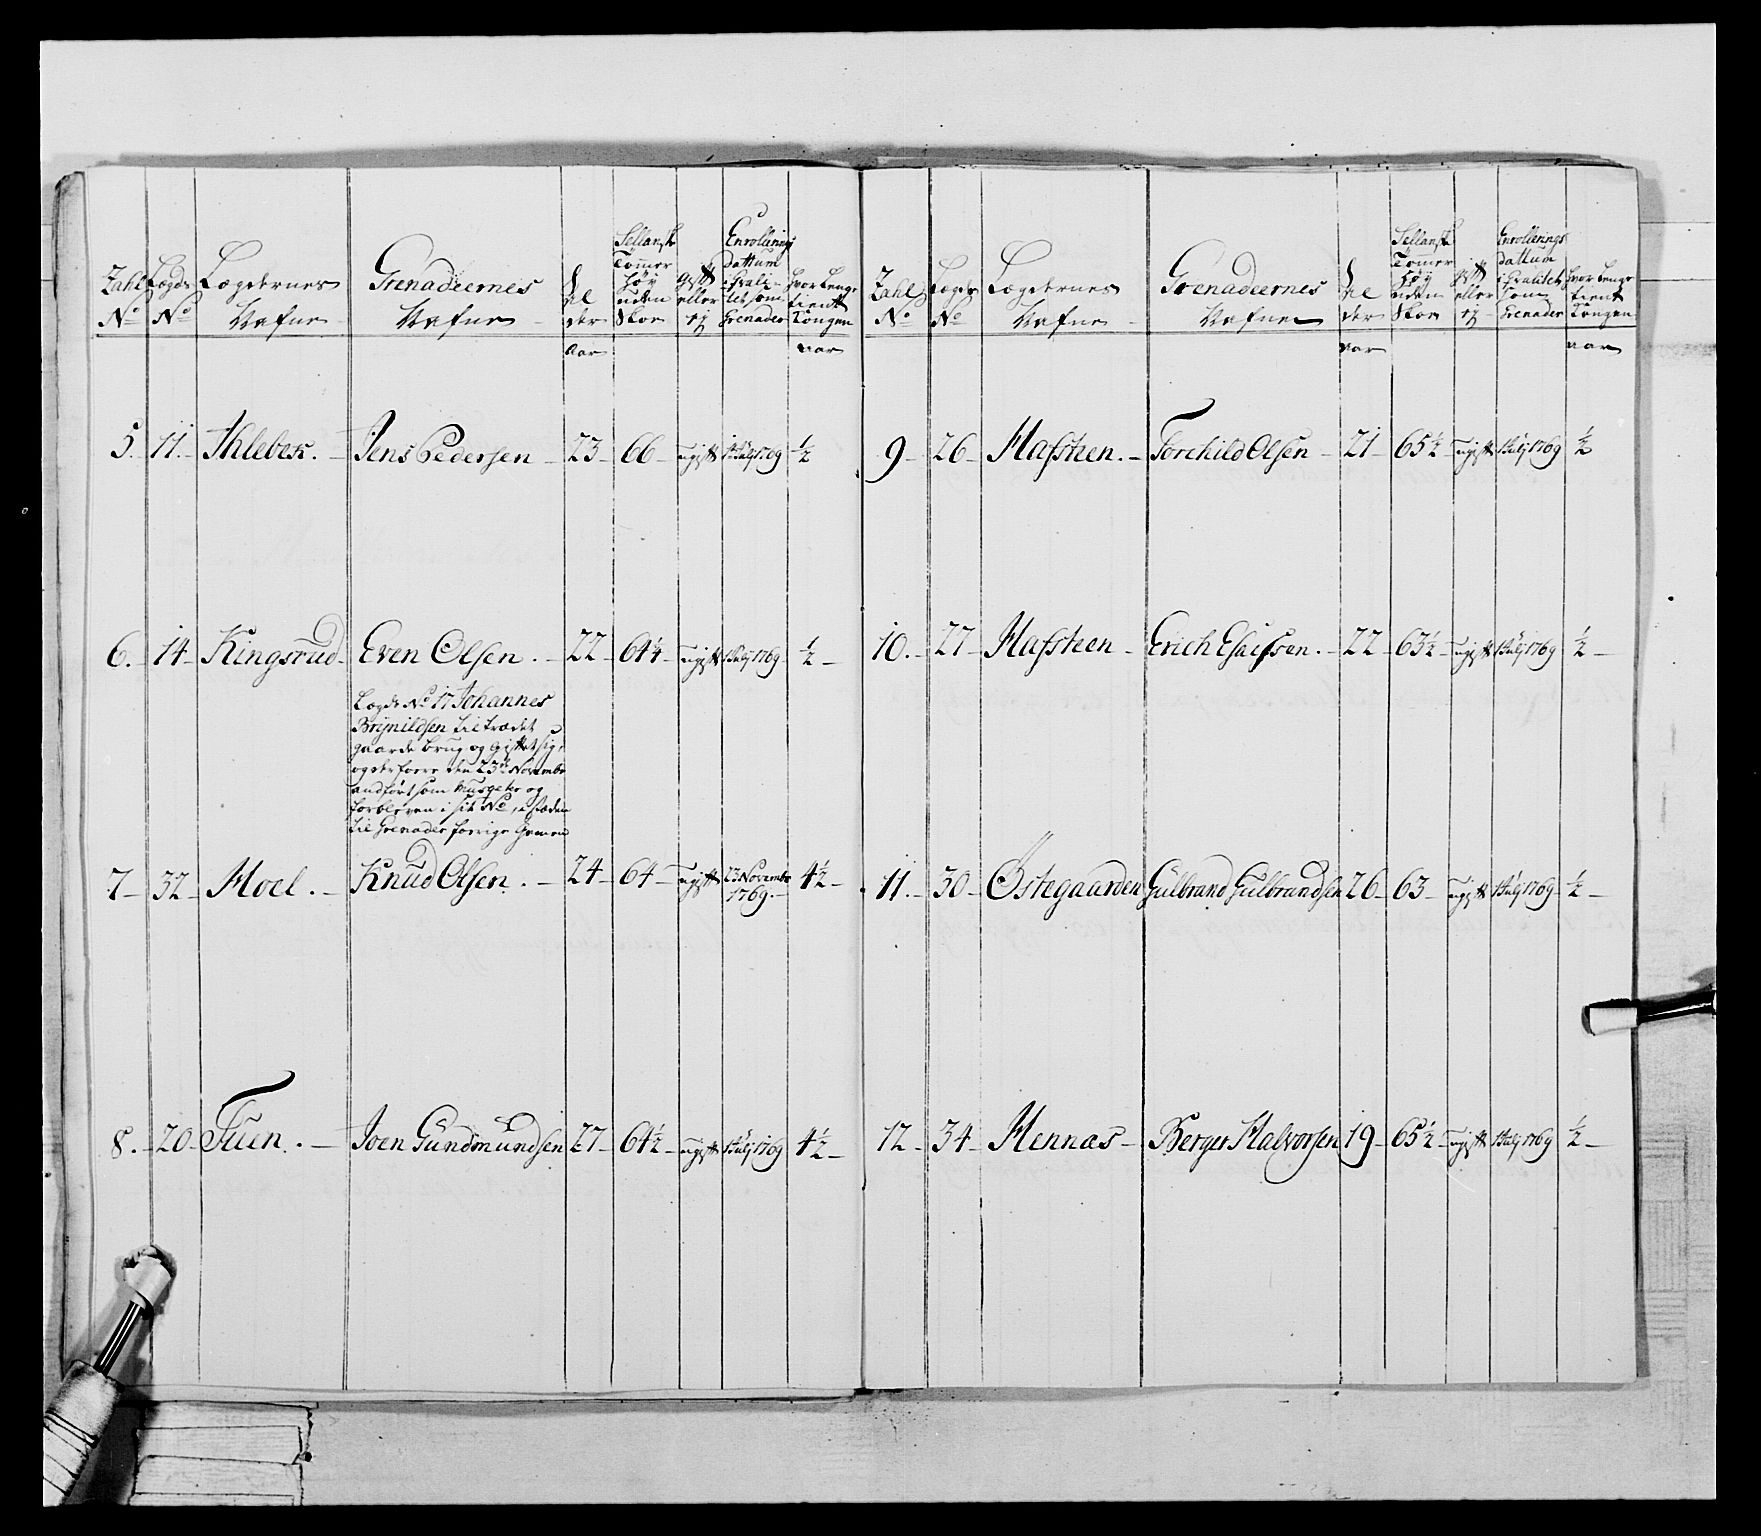 Zahl No
Lægds No
Lægdernes Nafne
Grenadeernes Nafne
Al der
Sellansk Tommer höy uden Skoe
gift eller ej
Enrollerings dattum i Qvali- tet som Grenader
hvor lenge tient Kongen
aar
aar
5. 11. Ihlebek. Jens Pedersen 23 66 ugift 1 Julj 1769 ½
6. 14 Kingsrud Even Olsen. 22 64¼ ugift 1 Julj 1769 ½
Lægds No 17 Johannes
Brynildsen tiltrædet
gaarde brug og giftet sig,
og derfore den 23de Novembr
andført som Musqeter og
forbleven i sit No, i stæden
til Grenader forrige Gemeen
7 32 Moel. Knud Olsen. 24 64 ugift 23 Novembr 1769. 4½
8. 20 Tuen. Joen Gundmundsen 27 64½ ugift 1 Julj 1769 4½
Zahl No
Lægds No
Lægdernes Nafne
Grenadeernes Nafne
Al der
Sellansk Tommer höy uden Skoe
gift eller ej
Enrollerings dattum i Qvalitet som Grenader
hvor lenge tient Kongen
aar
aar
9 26 Hafsteen. Torchild Olsen 21 65½ ugift 1 Julj 1769 ½
10. 27 Hafsteen Erich Esaissen. 22 63½ ugift 1 Julj 1769 ½
11. 30 Østegaarden Gulbrand Gulbrandsen 26 63 ugift 1 Julj 1769 ½
12 34 Hennas Berger Halvorsen 19 65½ ugift 1 Julj 1769 ½